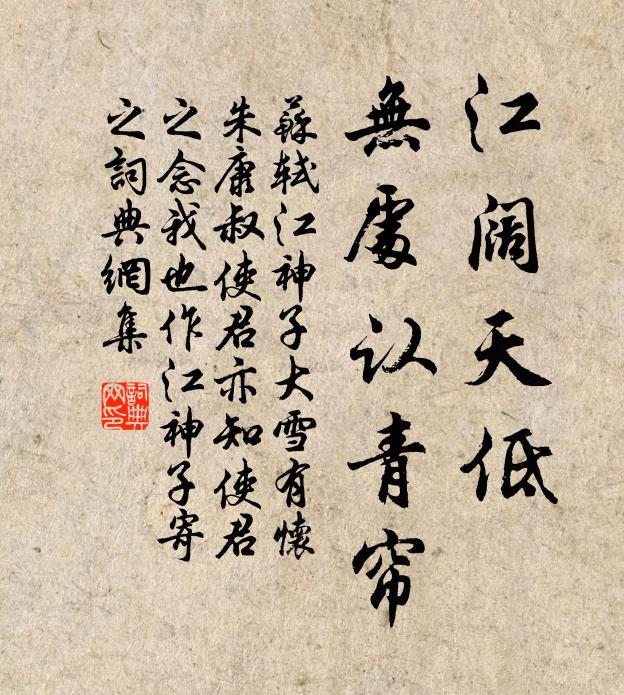 江阔天低
無處认青帘
蘇軾江神子大雪有懷
朱康叔使君亦知使君
之念我也作江神子寄
之詞典網集
詞典
网印